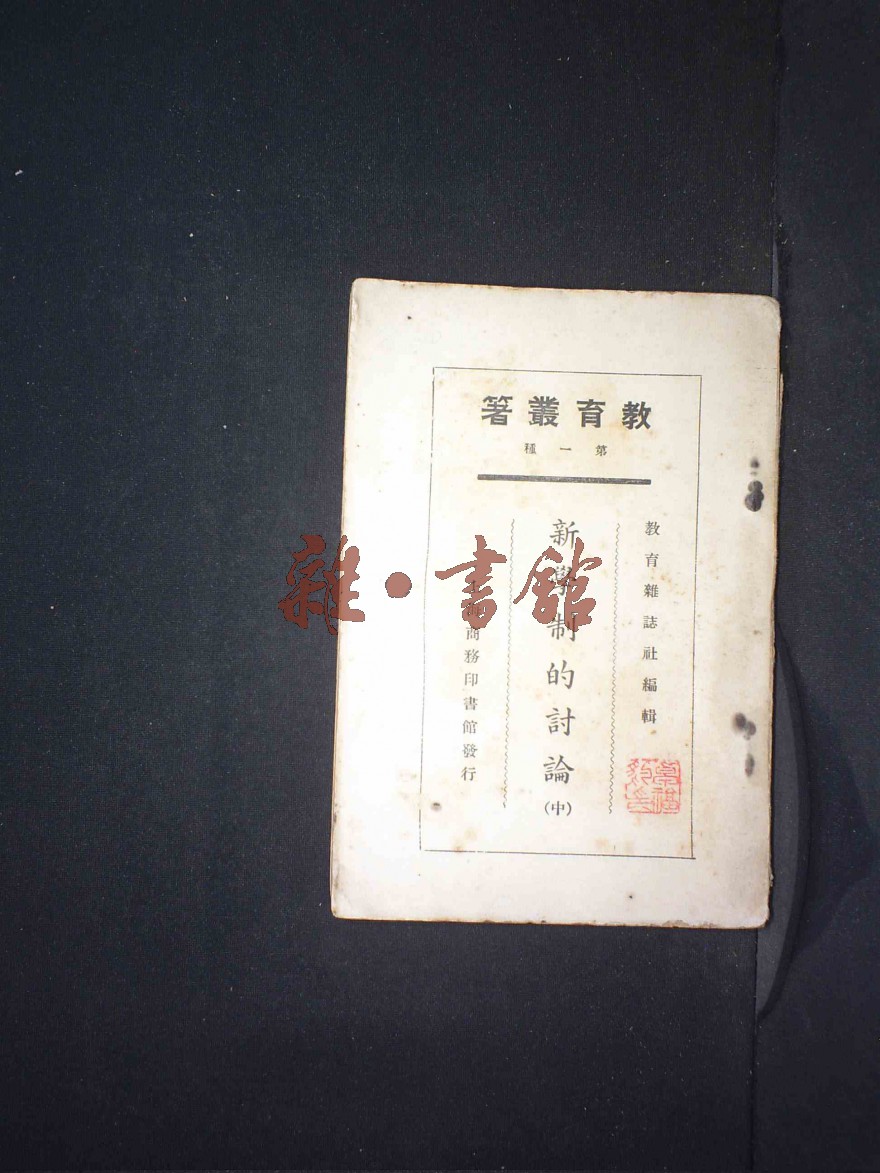 教育叢著
第一種
教育雜誌社編輯
新學制的討論(中)
商務印書館發行
雜·書館